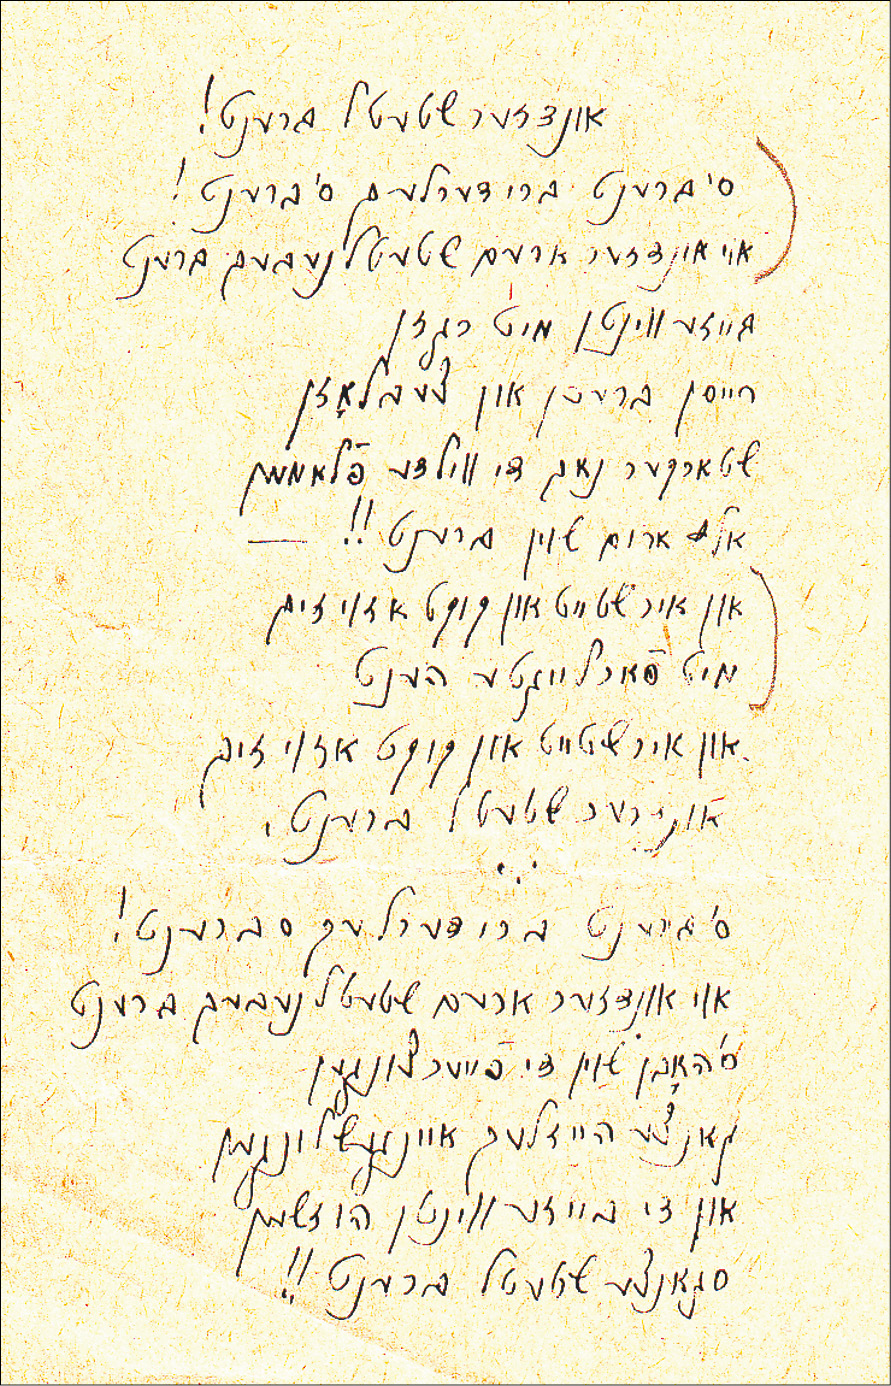 אונדזער שטעטל ברענט!
ס'ברענט ברידערלעך ס'ברענט!
אוי אונדזער ארעם שטעטל נעבעך ברענט
בייזע ווינטן מיט רגזון
רייסן ברעכן און צעבלאָזן
שטארקער נאך די ווילדע פֿלאמען
אלץ ארום שוין ברענט!! —
און איר שטייט און קוקט אזוי זיך
מיט פֿארלייגטע הענט
און איר שטייט און קוקט אזוי זיך
אונדזער שטעטל ברענט.
ס'ברענט ברידערלעך סברענט!
אוי אונדזער ארעם שטעטל נעבעך ברענט
ס'האָבן שוין די פֿייער צונגען
גאנצע הייזלעך איינגעשלונגען
און די בייזע ווינטן הוזשען
סגאנצע שטעטל ברענט!!